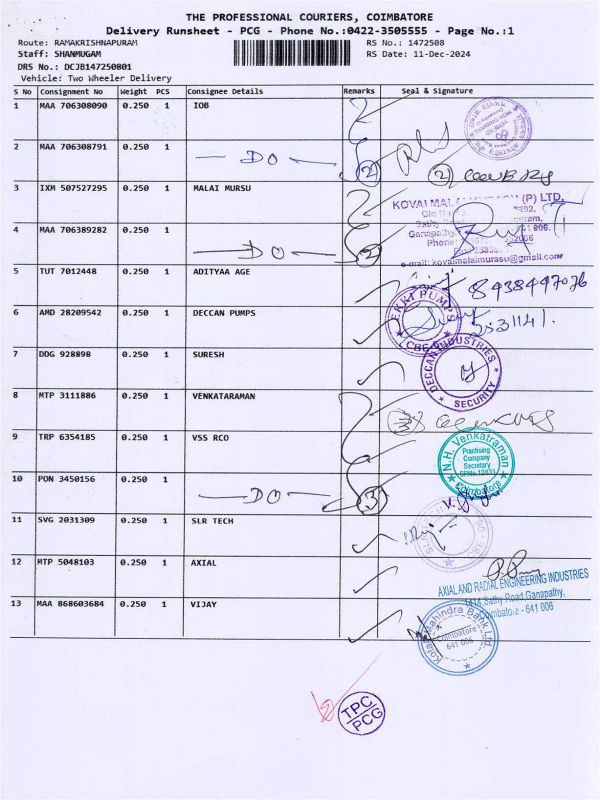 THE PROFESSIONAL COURIERS, COIMBATORE
Delivery Runsheet - PCG - Phone No.:0422-3505555 - Page No.:1
Route: RAMAKRISHNAPURAM RS No.: 1472508
Staff: SHANMUGAM RS Date: 11-Dec-2024
DRS No.: DCJB147250801
Vehicle: Two Wheeler Delivery
S No Consignment No Weight PCS Consignee Details Remarks Seal & Signature
1 MAA 706308090 0.250 1 IOB
2 MAA 706308791 0.250 1 DO 2 2
3 IXM 507527295 0.250 1 MALAI MURSU
KOVAI MALAI MURASU (P) LTD.
4 MAA 706389282 0.250 1 DO 2
Ganapathy,
Phone:
e-mail: kovaimalaimurasu@gmail.com
5 TUT 7012448 0.250 1 ADITYAA AGE 8438447076
6 AMD 28209542 0.250 1 DECCAN PUMPS
EKKI PUMPS
CBE-6
7 DDG 928898 0.250 1 SURESH
DECCAN INDUSTRIES
SECURITY
8 MTP 3111886 0.250 1 VENKATARAMAN
9 TRP 6354185 0.250 1 VSS RCO
N.H. Venkatraman
Practising
Company
Secretary
Coimbatore
10 PON 3450156 0.250 1 DO 3
11 SVG 2031309 0.250 1 SLR TECH
12 MTP 5048103 0.250 1 AXIAL
AXIAL AND RADIAL ENGINEERING INDUSTRIES
Sathy Road Ganapathy,
Coimbatore - 641 006
13 MAA 868603684 0.250 1 VIJAY
Kotak Mahindra Bank Ltd
Coimbatore
641 006
TPC
PCG